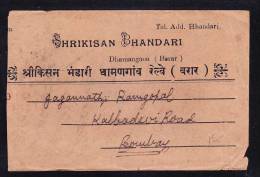 Tel. Add. Bhandari.
SHRIKISAN BHANDARI
Dhamangaon (Berar)
श्रीकिसन भंडारी धामणगांव रेल्वे ( बरार )
Jagannath Ramgopal
Kalbadevi Road
Bombay